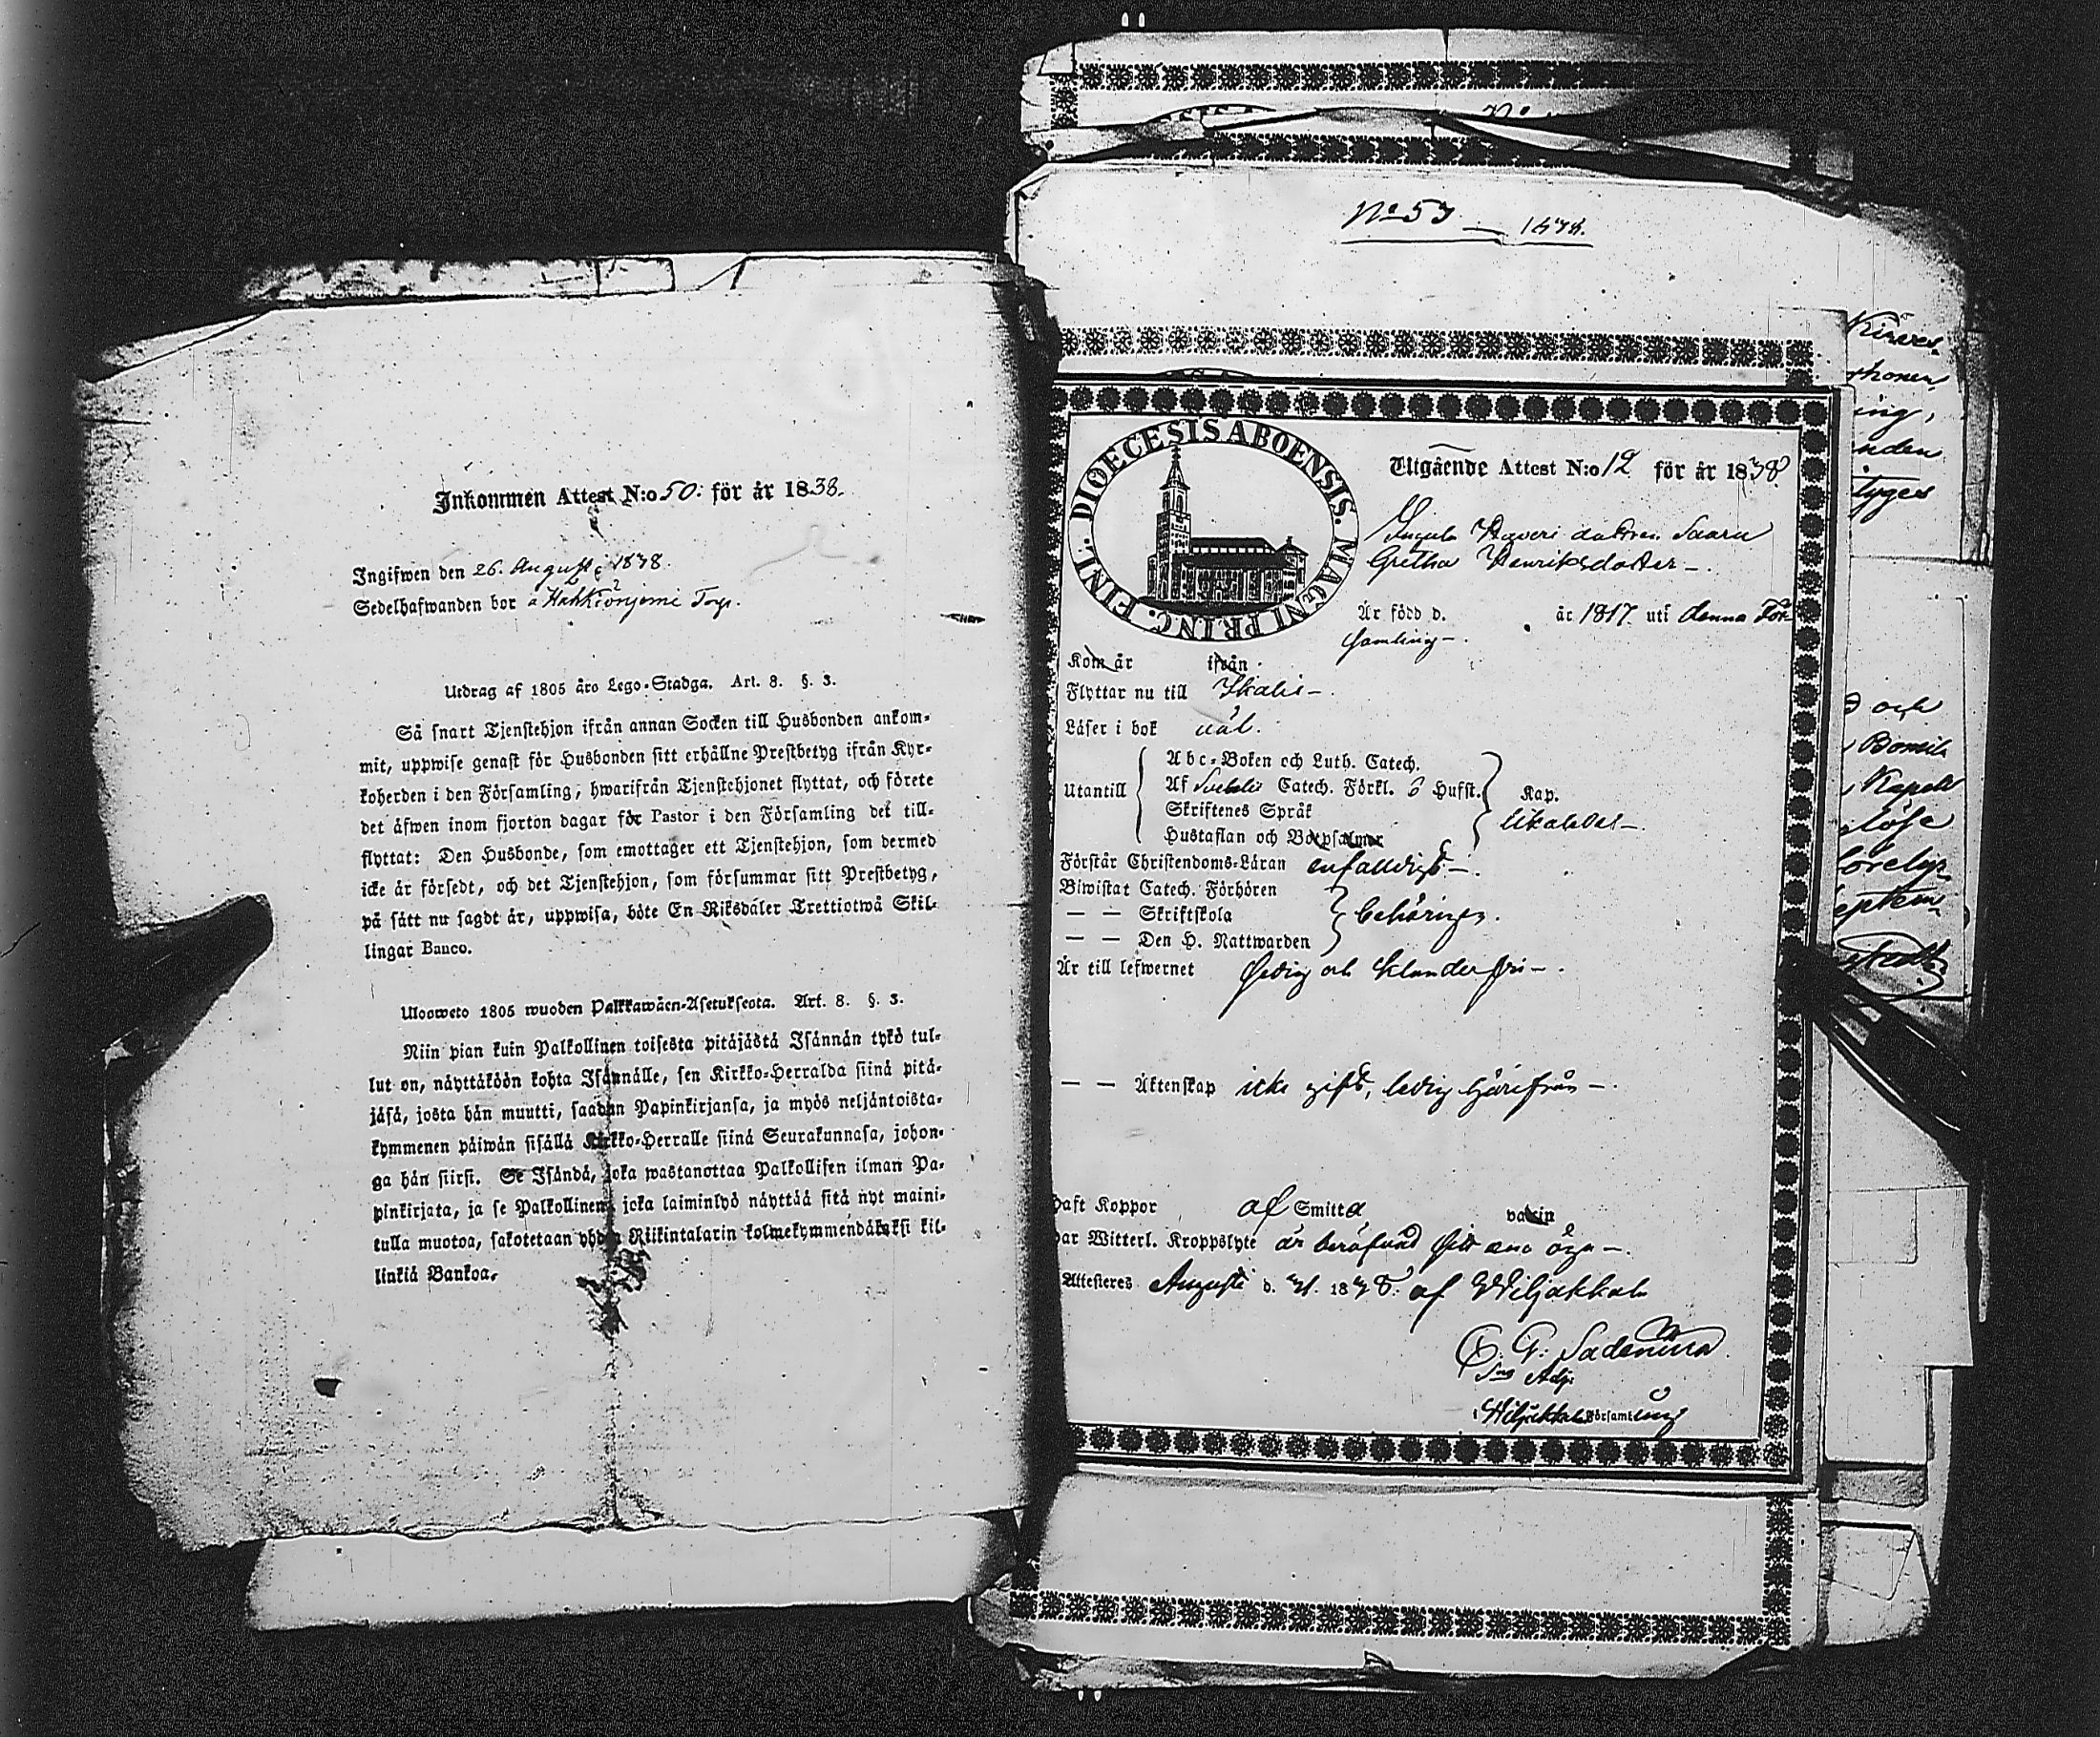 Inkommen Attest N:o 50: för år 1838.
Ingifwen den 26. Augusti 1838.
Sedelhafwanden bor å Torp.
Utdrag af 1805 års Lego-Stadga. Art. 8. §. 3.
Så snart Tjenstehjon ifrån annan Socken till Husbonden ankom-
mit, uppwise genast för Husbonden sitt erhållne Prestbetyg ifrån Kyr-
koherden i den Församling, hwarifrån Tjenstehjonet flyttat, och förete
det äfwen inom fjorton dagar för Pastor i den Församling det till-
flyttat: Den Husbonde, som emottager ett Tjenstehjon, som dermed
icke är försedt, och det Tjenstehjon, som försummar sitt Prestbetyg,
på sätt nu sagdt är, uppwisa, böte En Riksdaler Trettiotwå Skil-
lingar Banco.
Uloosweto 1805 wuoden Palkkawäen-Asetuksesta. Art. 8. §. 3.
Niin pian kuin Palkollinen toisesta pitäjästä Isännän tykö tul-
lut on, näyttäköön kohta Isännälle, sen Kirkko-Herralda siinä pitä-
jäsä, josta hän muutti, saadun Papinkirjansa, ja myös neljäntoista-
kymmenen päiwän sisällä Kirkko-Herralle siinä Seurakunnasa, johon-
ga hän siirsi. Se Isändä, joka wastanottaa Palkollisen ilman Pa-
pinkirjata, ja se Palkollinen, joka laiminlyö näyttää sitä nyt maini-
tulla muotoa, sakotetaan yhden Riikintalarin kolmekymmendäkaksi kil-
linkiä Bankoa.
N:o 57 1838.
DIOECESIS ABOENSIS. MAGNI PRINC. FINL.
Utgående Attest N:o 12 för år 1838
dottren Saara
Gretha Henriksdotter
Är född d. år 1817 uti denna För
samling
Kom år ifrån
Flyttar nu till Ikalis
Läser i bok väl.
Utantill
Abc-Boken och Luth. Catech.
Af Svebelii Catech. Förkl. 6 Hufst.
Skriftenes Språk
Hustaflan och Botpsalmer
Kap.
likaledes
Förstår Christendoms-Läran enfalldigt
Biwistat Catech. Förhören
— — Skriftskola
— — Den H. Nattwarden
behörigen.
Är till lefwernet ledig och klanderfri
— — Äktenskap icke gift, ledig härifrån
Haft Koppor af Smitta vaccin
Har Witterl. Kroppslyte är beröfvad sitt ena öga
Attesteres Augusti d. 21. 1838. af Wiljakkala
Adj.
i Wiljakkala Församling
och
Kapell